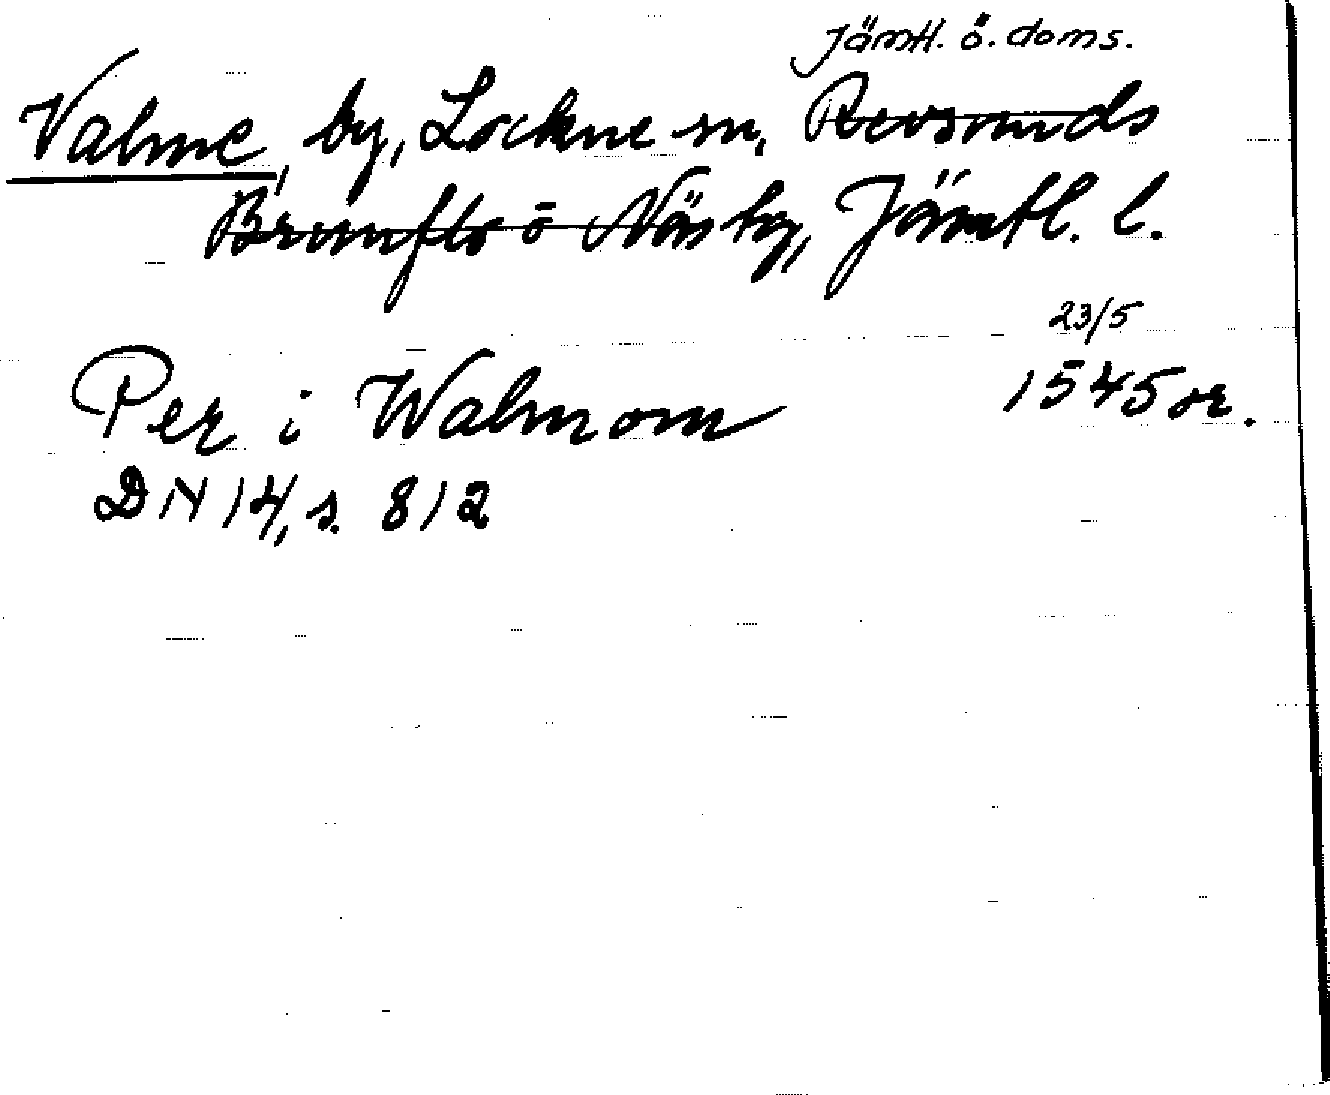 Jämtl. ö. doms.
Valne, by, Lockne sn, Revsunds
Brunflo o Näs tg, Jämtl. l.
23/5
Per i Walnom 1545 or.
DN 14, s. 812